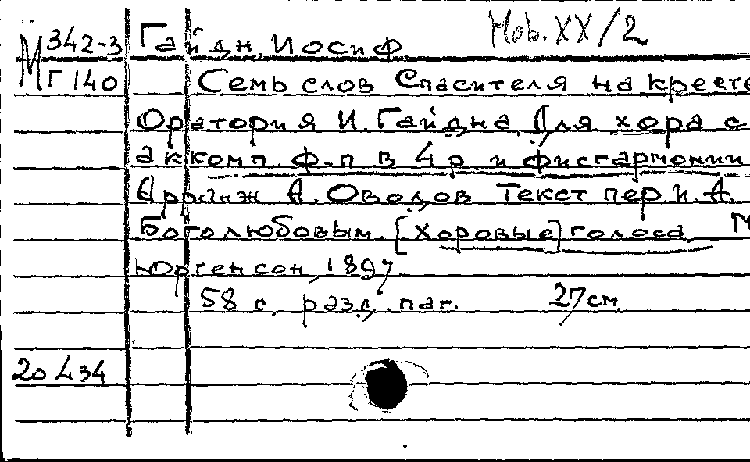 Hob. XX/2
М 342-3 Гайдн, Иосиф
Г 140 Семь слов Спасителя на кресте
Оратория И. Гайдна Для хора с
аккомп. ф-п в 4 р и фисгармонии
Аранж А. Оводов Текст пер И. А.
Боголюбовым. [Хоровые] голоса. М
Юргенсон, 1897
58 с. разд. паг. 27 см
20434